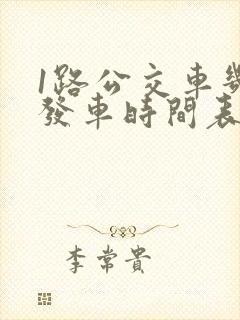 1路公交車
發車時間表
李常貴